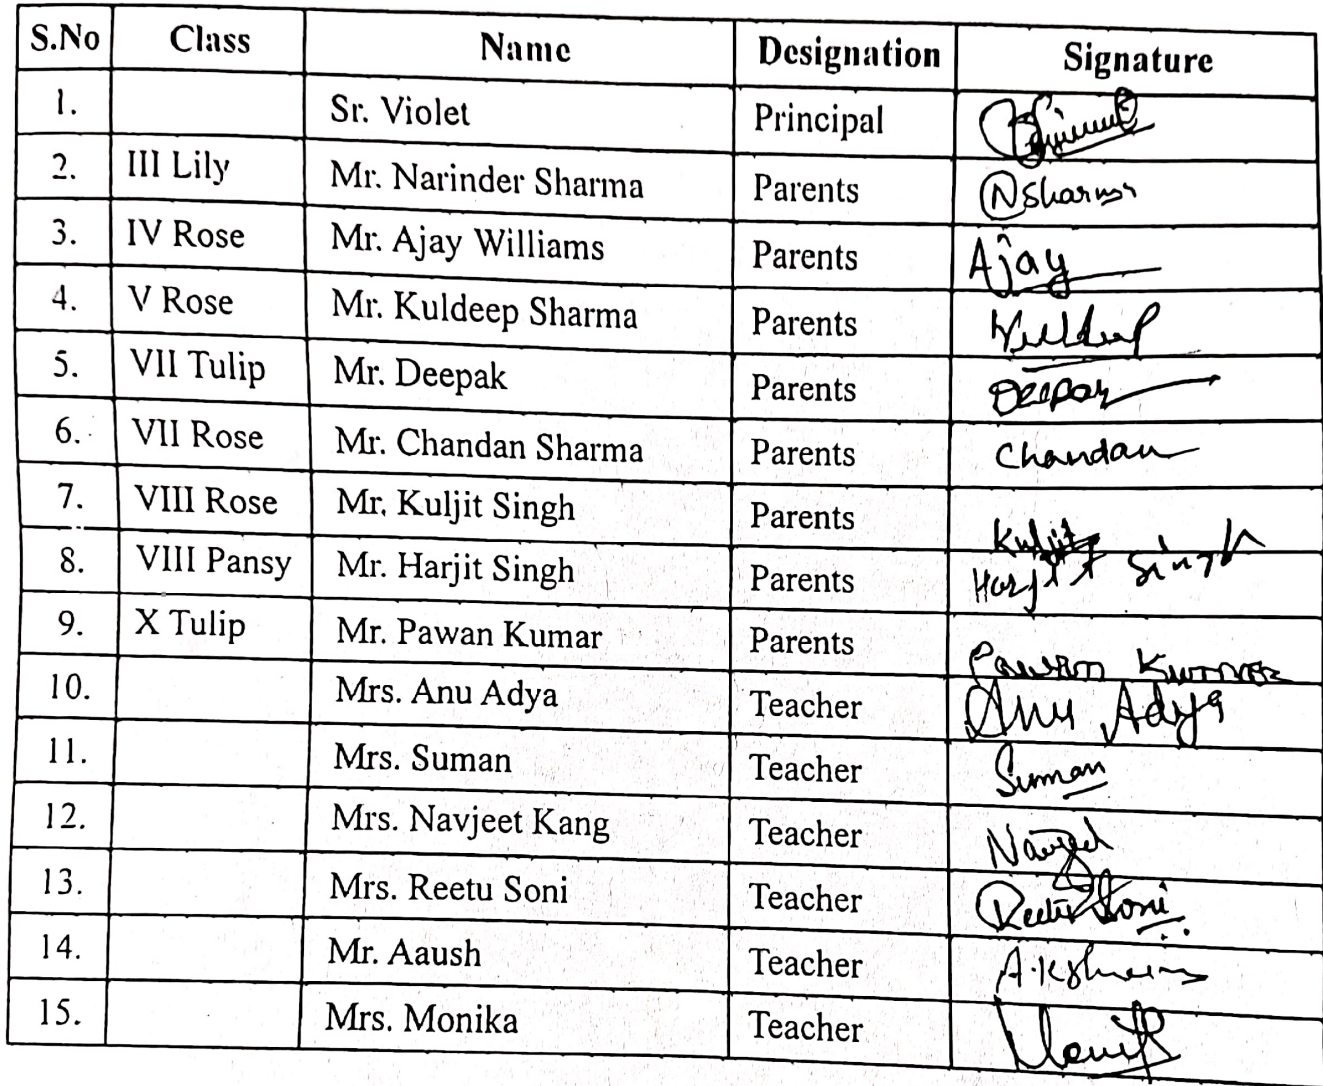 S.No Class Name Designation Signature
1. Sr. Violet Principal
2. III Lily Mr. Narinder Sharma Parents NSharma
3. IV Rose Mr. Ajay Williams Parents Ajay
4. V Rose Mr. Kuldeep Sharma Parents Kuldeep
5. VII Tulip Mr. Deepak Parents Deepak
6. VII Rose Mr. Chandan Sharma Parents Chandan
7. VIII Rose Mr. Kuljit Singh Parents Kuljit
8. VIII Pansy Mr. Harjit Singh Parents Harjit Singh
9. X Tulip Mr. Pawan Kumar Parents Pawan Kumar
10. Mrs. Anu Adya Teacher Anu Adya
11. Mrs. Suman Teacher Suman
12. Mrs. Navjeet Kang Teacher
13. Mrs. Reetu Soni Teacher Reetu Soni
14. Mr. Aaush Teacher
15. Mrs. Monika Teacher